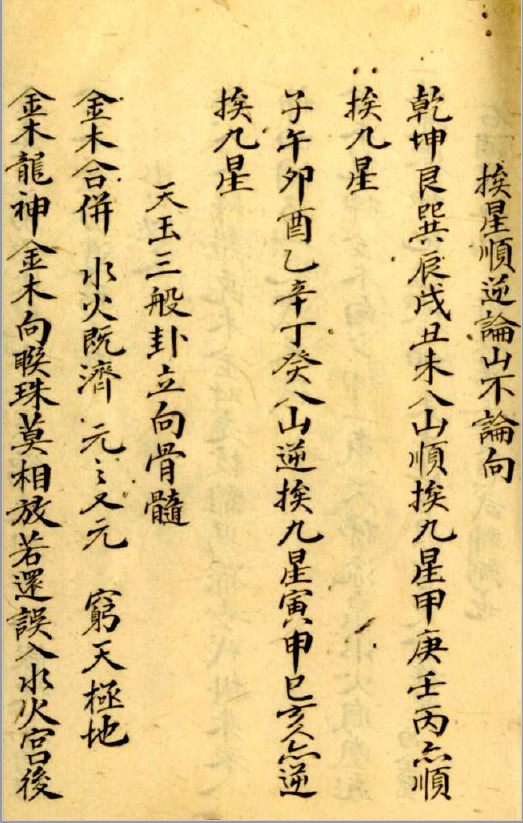 挨星順逆論山不論向
乾坤艮巽辰戌丑未八山順挨九星甲庚壬丙亦順
挨九星
子午卯酉乙辛丁癸八山逆挨九星寅申巳亥亦逆
挨九星
天玉三般卦立向骨髓
金木合併 水火既濟 元々又元 窮天極地
金木龍神金木向睽珠莫相放若還誤入水火宮後